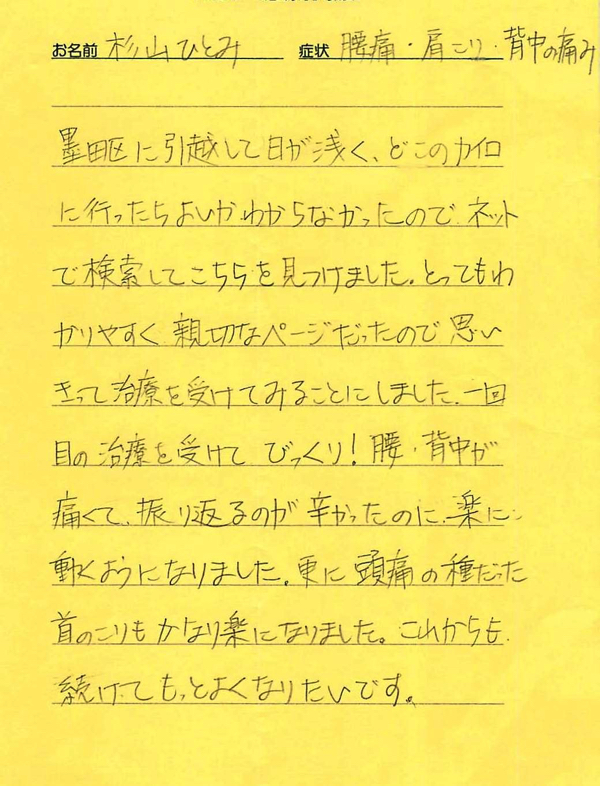 お名前 杉山ひとみ 症状 腰痛・肩こり・背中の痛み
墨田区に引越して日が浅く、どこのカイロ
に行ったらよいかわからなかったので、ネット
で検索してこちらを見つけました。とってもわ
かりやすく親切なページだったので思い
きって治療を受けてみることにしました。一回
目の治療を受けてびっくり!腰・背中が
痛くて、振り返るのが辛かったのに、楽に
動くようになりました。更に頭痛の種だった
首のこりもかなり楽になりました。これからも
続けてもっとよくなりたいです。